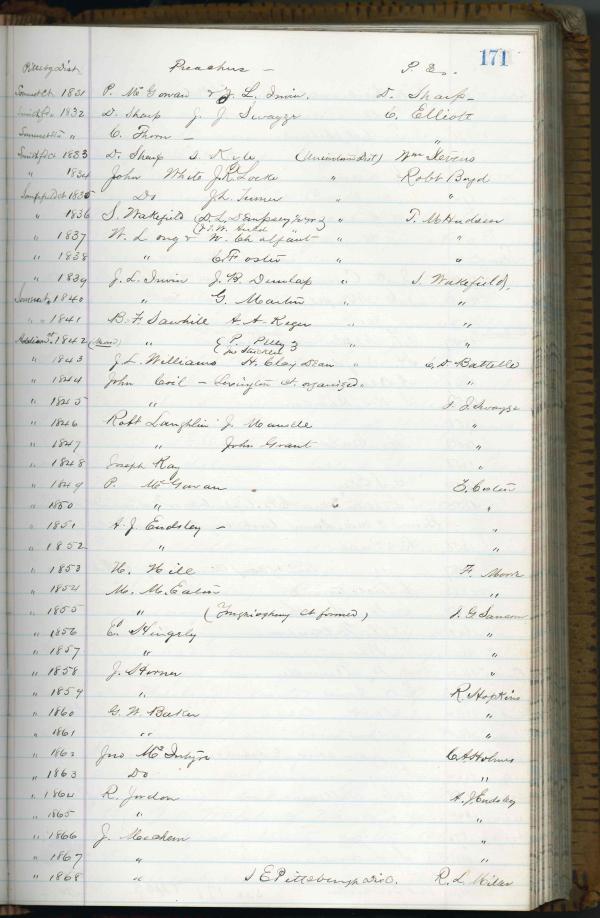 171
Pittsbg Dist. Preachers — P. Es.
Somerset Ct 1831 P. McGowan & J. L. Irwin. D. Sharp
Smithfd " 1832 D. Sharp J. J. Swayze C. Elliott
Somerset Ct " C. Thorn — "
Smithfd Ct 1833 D. Sharp S. Kyle (Uniontown Dist) Wm Stevens
" 1834 John White J. K. Locke " Robt Boyd
Ct 1835 Do J. L. Turner " "
" 1836 S. Wakefield (D. L. Dempsey " T. M. Hudson
" 1837 W. Long & W. Chalfant " "
" 1838 " C. Foster " "
" 1839 J. L. Irwin J. B. Dunlap " S. Wakefield.
Somerset 1840 " G. Martin " "
" " 1841 B. F. Sawhill A. A. Reger " "
Addison Ct. 1842 " " "
" 1843 J. L. Williams H. Clay Dean " C. D. Battelle
" 1844 John Coil — Ct. organized " "
" 1845 " J. J. Swayze
" 1846 Robt Laughlin J. Mancle "
" 1847 " John Grant "
" 1848 Joseph Ray "
" 1849 P. McGowan Z. Coston
" 1850 " "
" 1851 A. J. Endsley — "
" 1852 " "
" 1853 H. Hill F. Moore
" 1854 M. M. Eaton "
" 1855 " ( Ct formed) J. G. Sansom
" 1856 E. Hingely "
" 1857 " "
" 1858 J. Horner "
" 1859 " R. Hopkins
" 1860 G. W. Baker "
" 1861 " "
" 1862 Jno McIntyre C. A. Holmes
" 1863 Do "
" 1864 R. Jordon A. J. Endsley
" 1865 " "
" 1866 J. Meacham "
" 1867 " "
" 1868 " S E Pittsburgh Dis. R. L. Miller